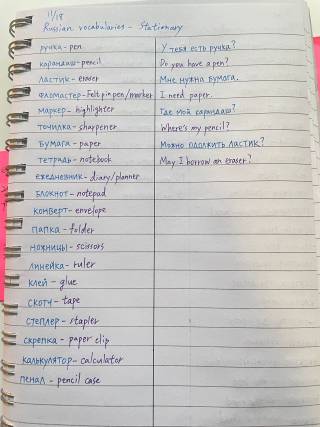 11/18
Russian vocabularies - Stationary
ручка - pen
карандаш - pencil
ластик - eraser
фломастер - Felt pin pen/marker
маркер - highlighter
точилка - sharpener
бумага - paper
тетрадь - notebook
ежедневник - diary/planner
блокнот - notepad
конверт - envelope
папка - folder
ножницы - scissors
линейка - ruler
клей - glue
скотч - tape
степлер - stapler
скрепка - paper clip
калькулятор - calculator
пенал - pencil case
У тебя есть ручка?
Do you have a pen?
Мне нужна бумага.
I need paper.
Где мой карандаш?
Where's my pencil?
Можно одолжить ластик?
May I borrow an eraser?